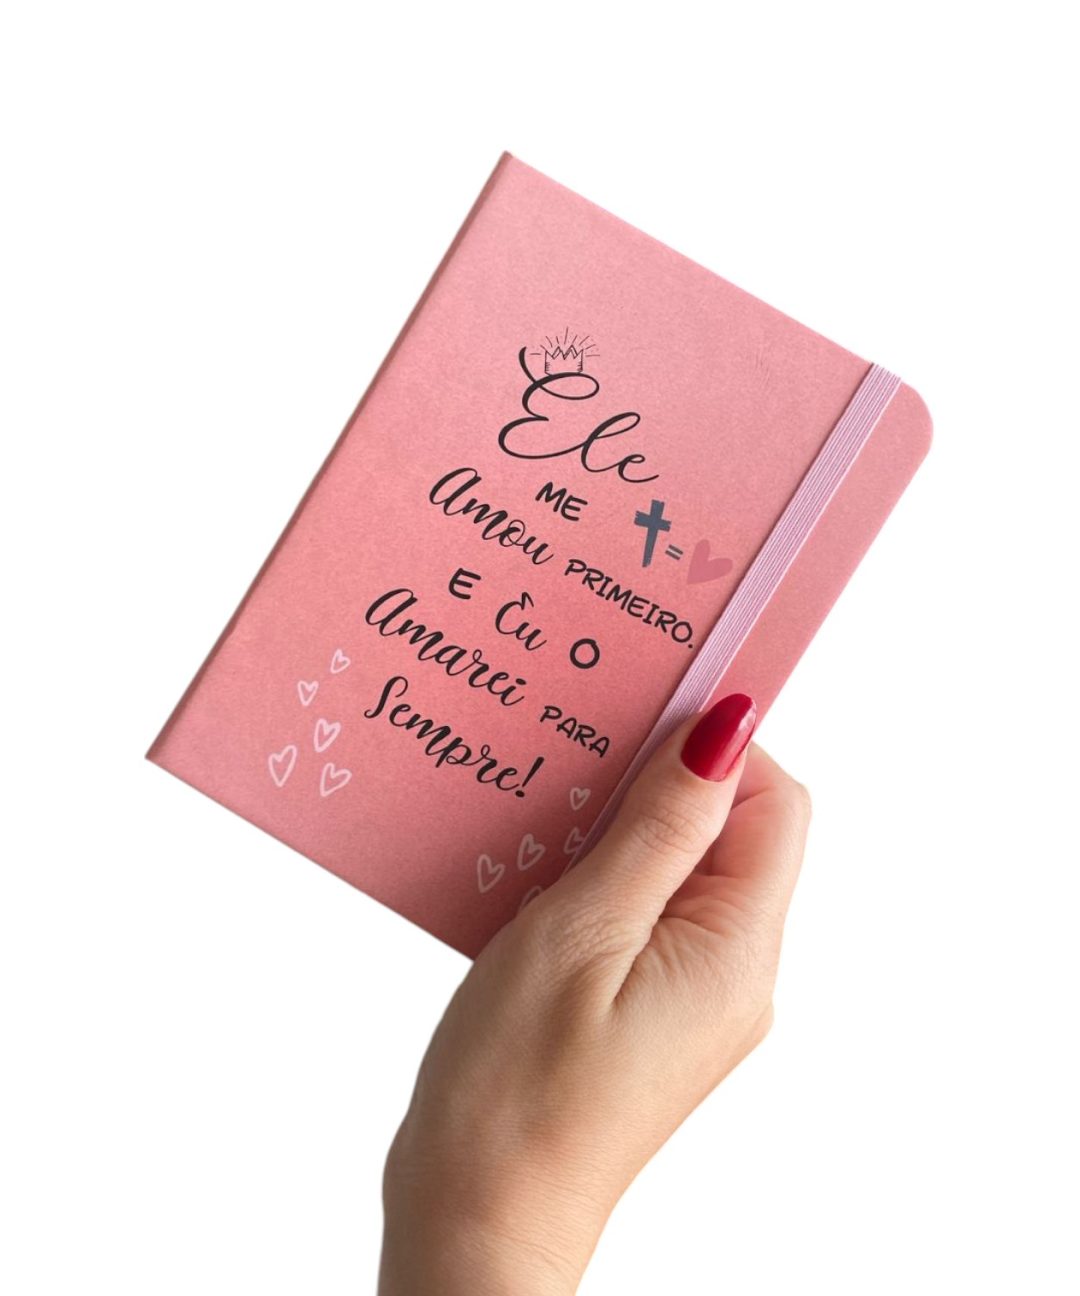 Ele
ME
Amou PRIMEIRO.
E Eu O
Amarei PARA
Sempre!
=